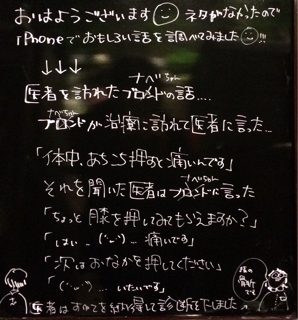 おはようございます ネタがなかったので
iPhoneでおもしろい話を調べてみました!!!
↓↓↓
ナベちゃん
医者を訪れたブロンドの話....
ナベちゃん
ブロンドが治療に訪れて医者に言った...
「体中、あちこち押すと痛いんです」
それを聞いた医者はブロンドに言った
「ちょっと膝を押してみてもらえますか?」
「はい... 痛いです」
「次はおなかを押してください」
「 ... いたいです」
指の骨折です
医者はすべてを納得して診断を下しました